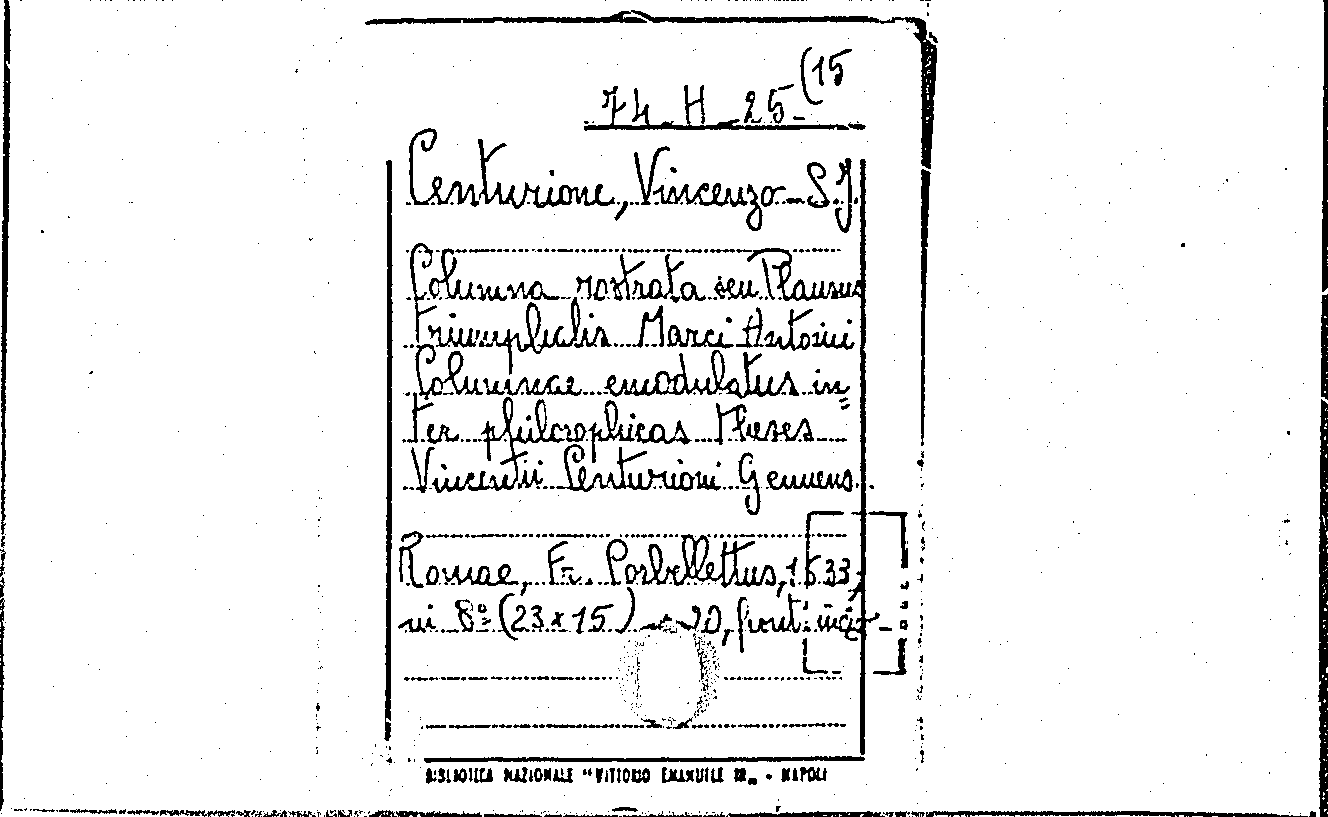 74 H 25 (15
Centurione, Vincenzo S.J.
Columna rostrata seu Plausus
triumphalis Marci Antonii
Columnae emodulatus in=
ter philosophicas Theses
Vincentii Centurioni Genuens.
Romae, Fr. Corbellettus, 1633,
in 8º (23 x 15) 90, front. inc.
BIBLIOTECA NAZIONALE "VITTORIO EMANUELE III„ - NAPOLI